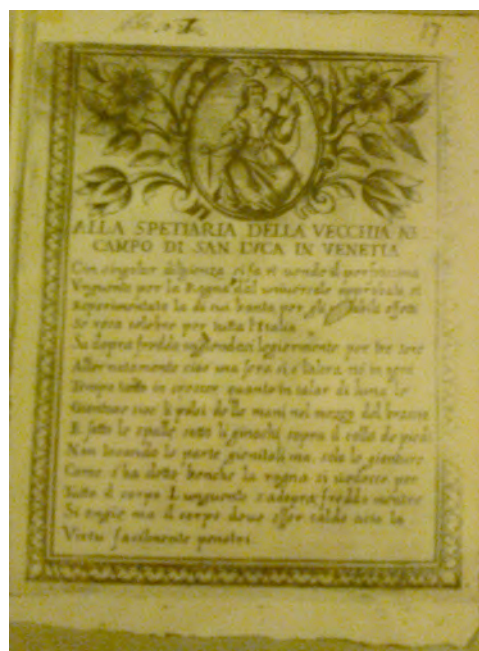 17
ALLA SPETIARIA DELLA VECCHIA AS
CAMPO DI SAN LVCA IN VENETIA
Con singular diligenza si fa et vende il perfetissimo
Vnguento per la Rogna dal universale approbata et
esperimentate la di cui bonta per gli effetti
Se resa celebre per tutta l'Italia
Sa dopra freddo ungendosi legiermente per tre sere
Alternatamente cioe una sera si e l'altra no in ogni
Tempo tanto in crescer quanto in calar di luna le
Gionture cioe li polsi delle mani nel mezzo del brazzo
E sotto le spalle sotto li ginochi sopra il collo de piedi
Non toccando le parte genitali ma solo le gionture
Come s'ha detto benche la rogna si vedesse per
Tutto il corpo L'unguento s'adopra freddo mentre
Si ongie ma il corpo deve esser caldo acio la
Virtu facilmente penetri